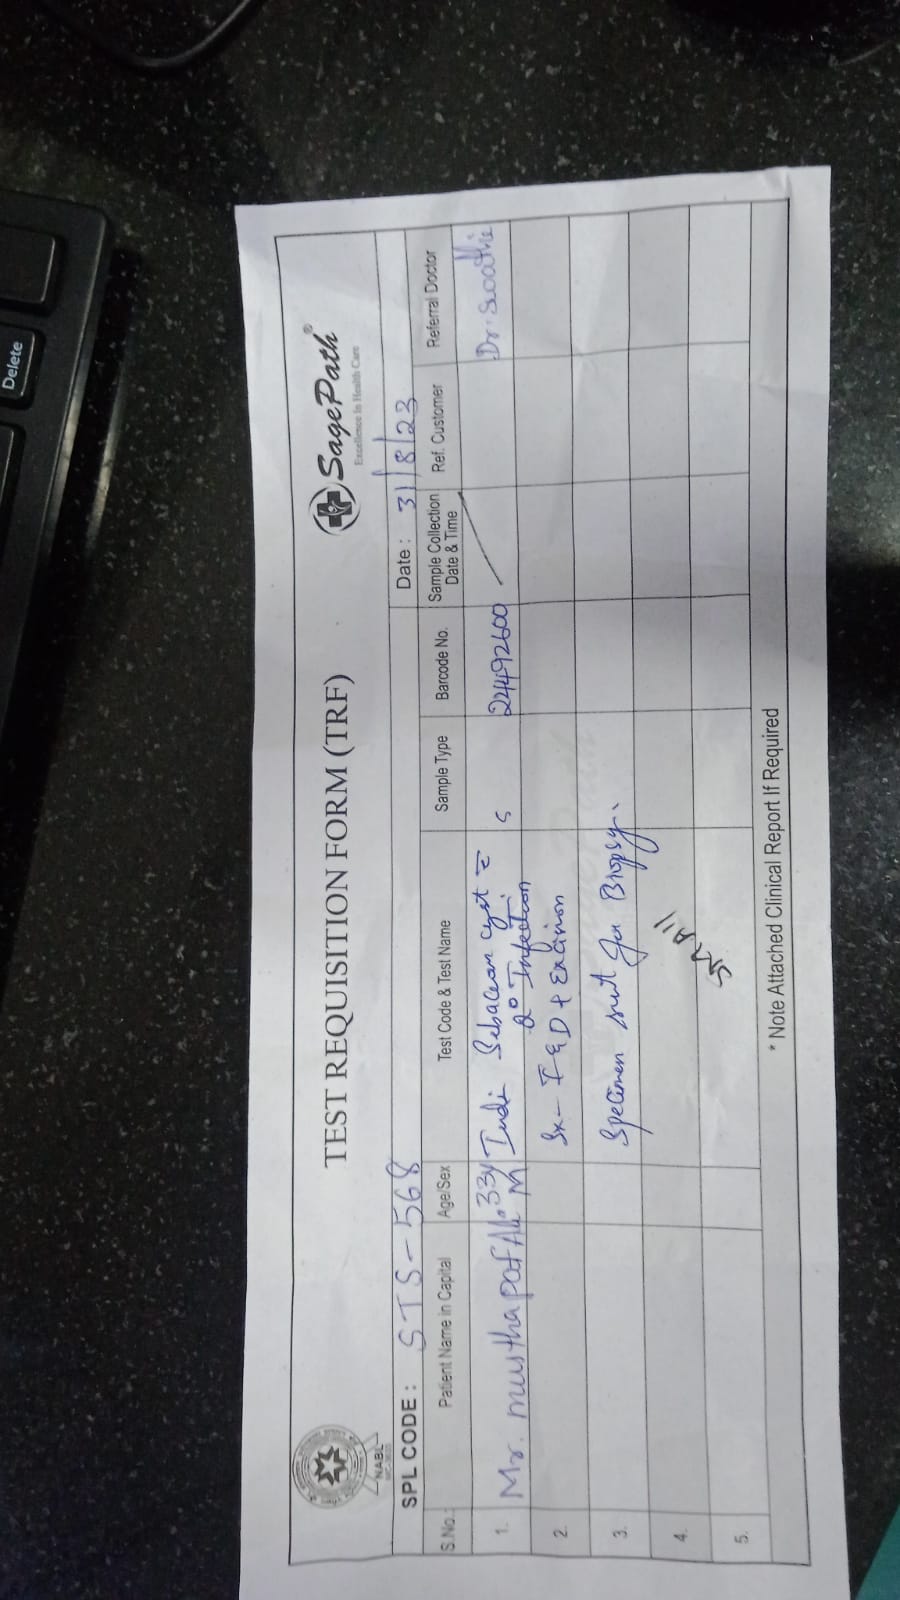 TEST REQUISITION FORM (TRF)
SagePath®
Excellence In Health Care
NABL
SPL CODE : STS-568
Date : 31/8/23
S.No. Patient Name in Capital Age/Sex Test Code & Test Name Sample Type Barcode No. Sample Collection Date & Time Ref. Customer Referral Doctor
1. Mr. musthapaf Ali 33y M Indi Sebaceous cyst c̄ S 24492600 Dr. Swathi
2° Infection
2. Sx - I & D + Excision
3. Specimen sent for Biopsy.
4.
5.
* Note Attached Clinical Report If Required
Delete